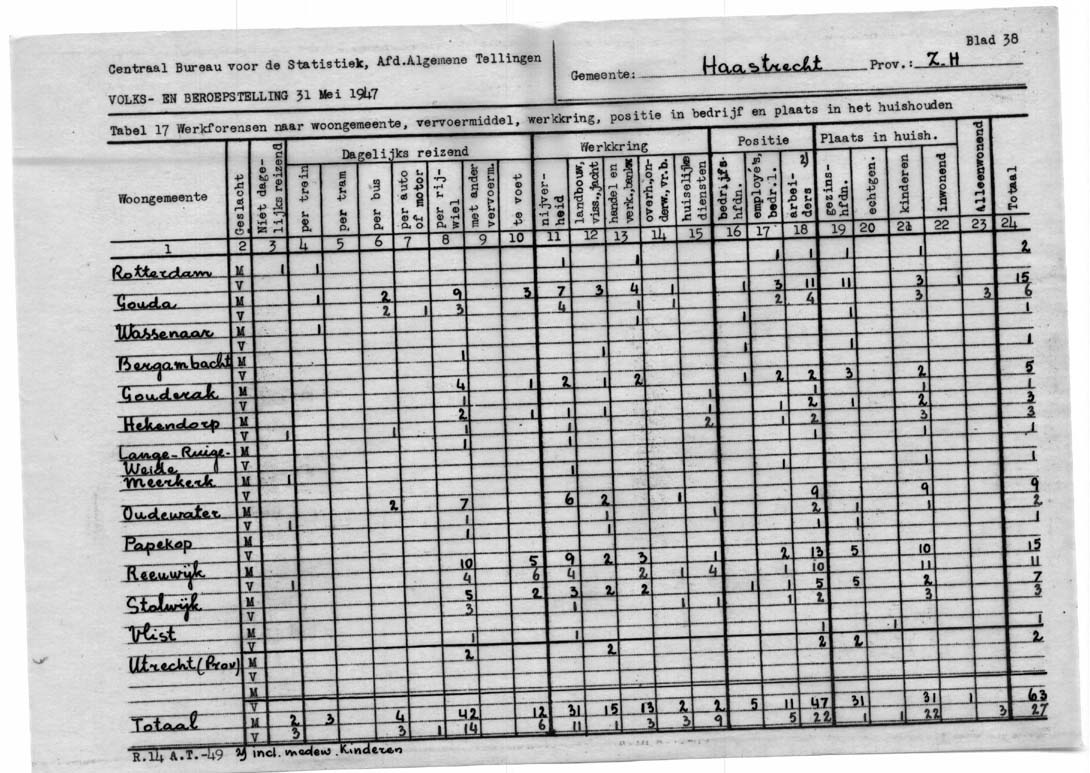 Blad 38
Centraal Bureau voor de Statistiek, Afd.Algemene Tellingen
Gemeente: Haastrecht Prov.: Z.H
VOLKS- EN BEROEPSTELLING 31 Mei 1947
Tabel 17 Werkforensen naar woongemeente, vervoermiddel, werkkring, positie in bedrijf en plaats in het huishouden
Woongemeente Geslacht Niet dage-lijks reizend Dagelijks reizend per trein per tram per bus per auto of motor per rij-wiel met ander vervoerm. te voet Werkkring nijver-heid landbouw, viss.,jacht handel en verk.,bankw overh,on-derw.,vr.b. huiselijke diensten Positie bedrijfs-hfdn. employé's, bedr.l. arbei-ders 2) Plaats in huish. gezins-hfdn. echtgen. kinderen inwonend Alleenwonend Totaal
1 2 3 4 5 6 7 8 9 10 11 12 13 14 15 16 17 18 19 20 21 22 23 24
Rotterdam M 1 1 1 1 1 1 1 1 2
V
Gouda M 1 2 9 3 7 3 4 1 1 3 11 11 3 1 15
V 2 1 3 4 1 1 2 4 3 3 6
Wassenaar M 1 1 1 1 1
V
Bergambacht M 1 1 1 1 1
V
Gouderak M 4 1 2 1 2 1 2 2 3 2 5
V 1 1 1 1 1
Hekendorp M 2 1 1 1 1 1 2 1 2 3
V 1 1 1 1 2 1 2 3 3
Lange-Ruige- M 1 1 1 1 1
Weide V
Meerkerk M 1 1 1 1 1
V
Oudewater M 2 7 6 2 1 9 9 9
V 1 1 1 1 2 1 1 2
Papekop M 1 1 1 1 1
V
Reeuwijk M 10 5 9 2 3 1 2 13 5 10 15
V 1 4 6 4 2 1 4 1 10 11 11
Stolwijk M 5 2 3 2 2 1 1 5 5 2 7
V 3 1 1 1 1 2 3 3
Vlist M 1 1 1 1 1
V
Utrecht (Prov) M 2 2 2 2 2
V
M
V
Totaal M 2 3 4 42 12 31 15 13 2 2 5 11 47 31 31 1 63
V 3 3 1 14 6 11 1 3 3 9 5 22 1 1 22 3 27
R.14 A.T.-49 2) incl. medew. Kinderen